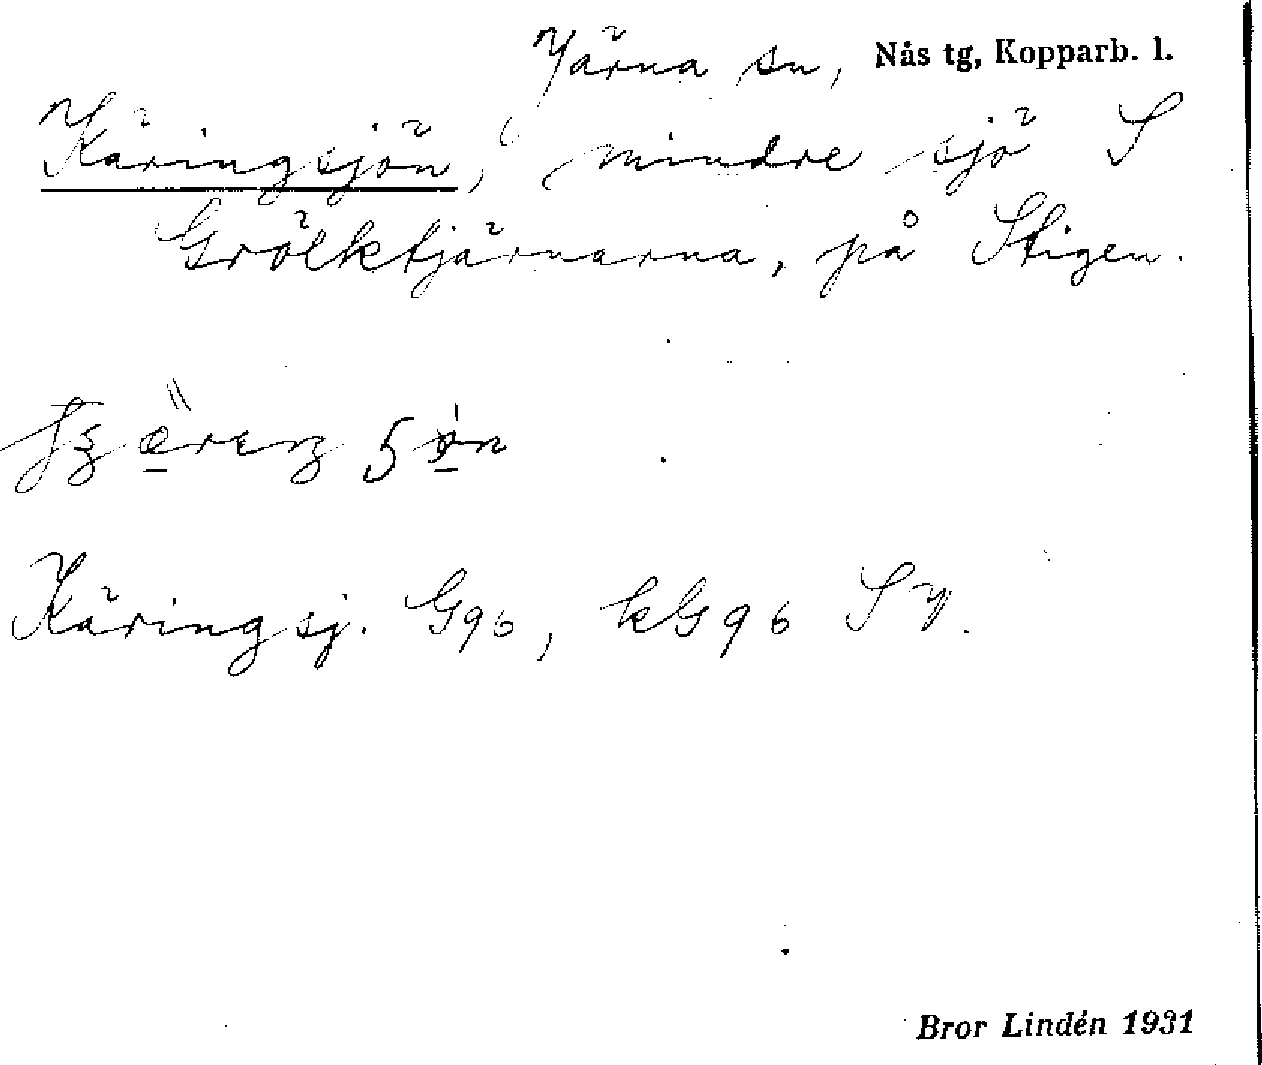 Järna sn, Nås tg, Kopparb. l.
Käringsjön, mindre sjö S
Grölktjärnarna, på Stigen.
Käringsj. G96, kG96 SV.
Bror Lindén 1931